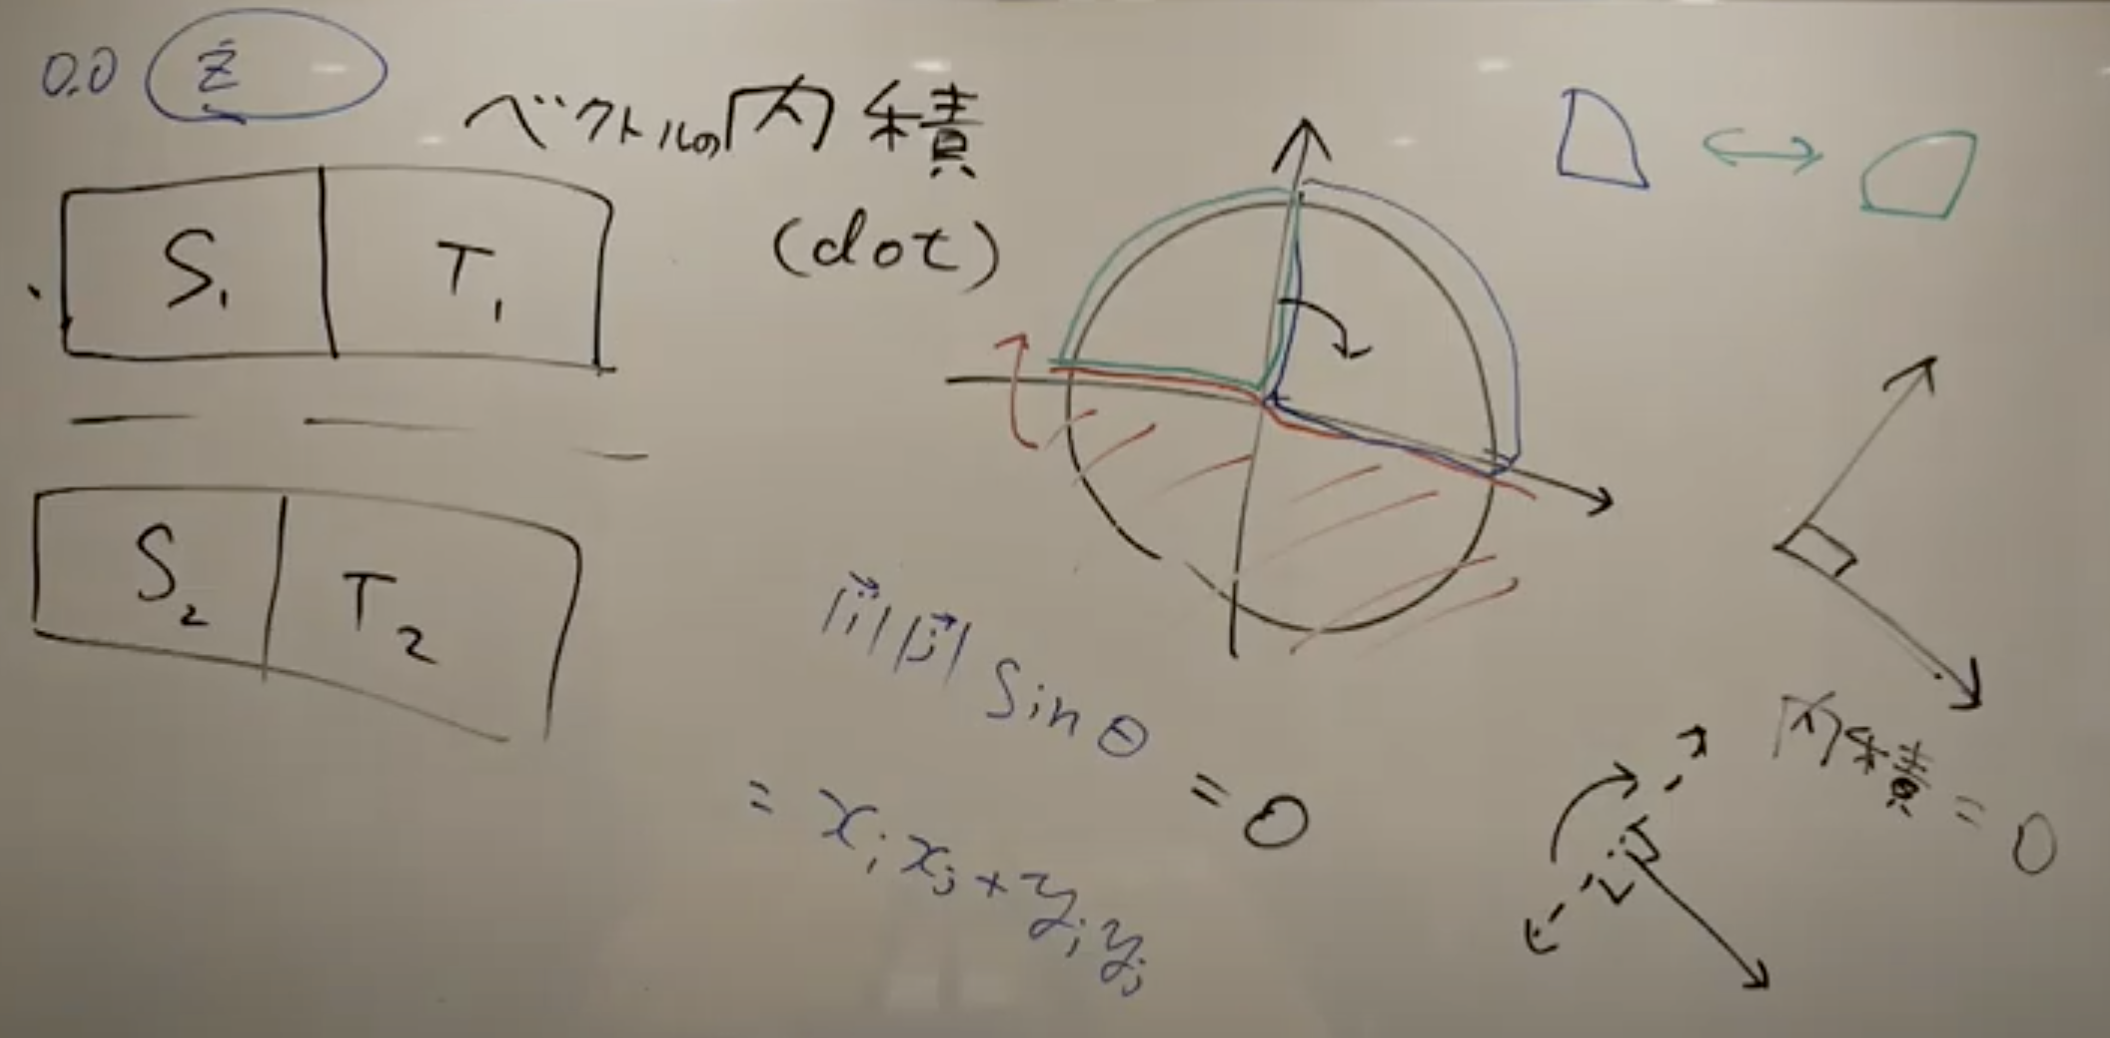 0.0
ベクトルの内積
(dot)
S₁ T₁
S₂ T₂
|i⃗||j⃗| sinθ = 0
= xᵢxⱼ + yᵢyⱼ
内積 = 0